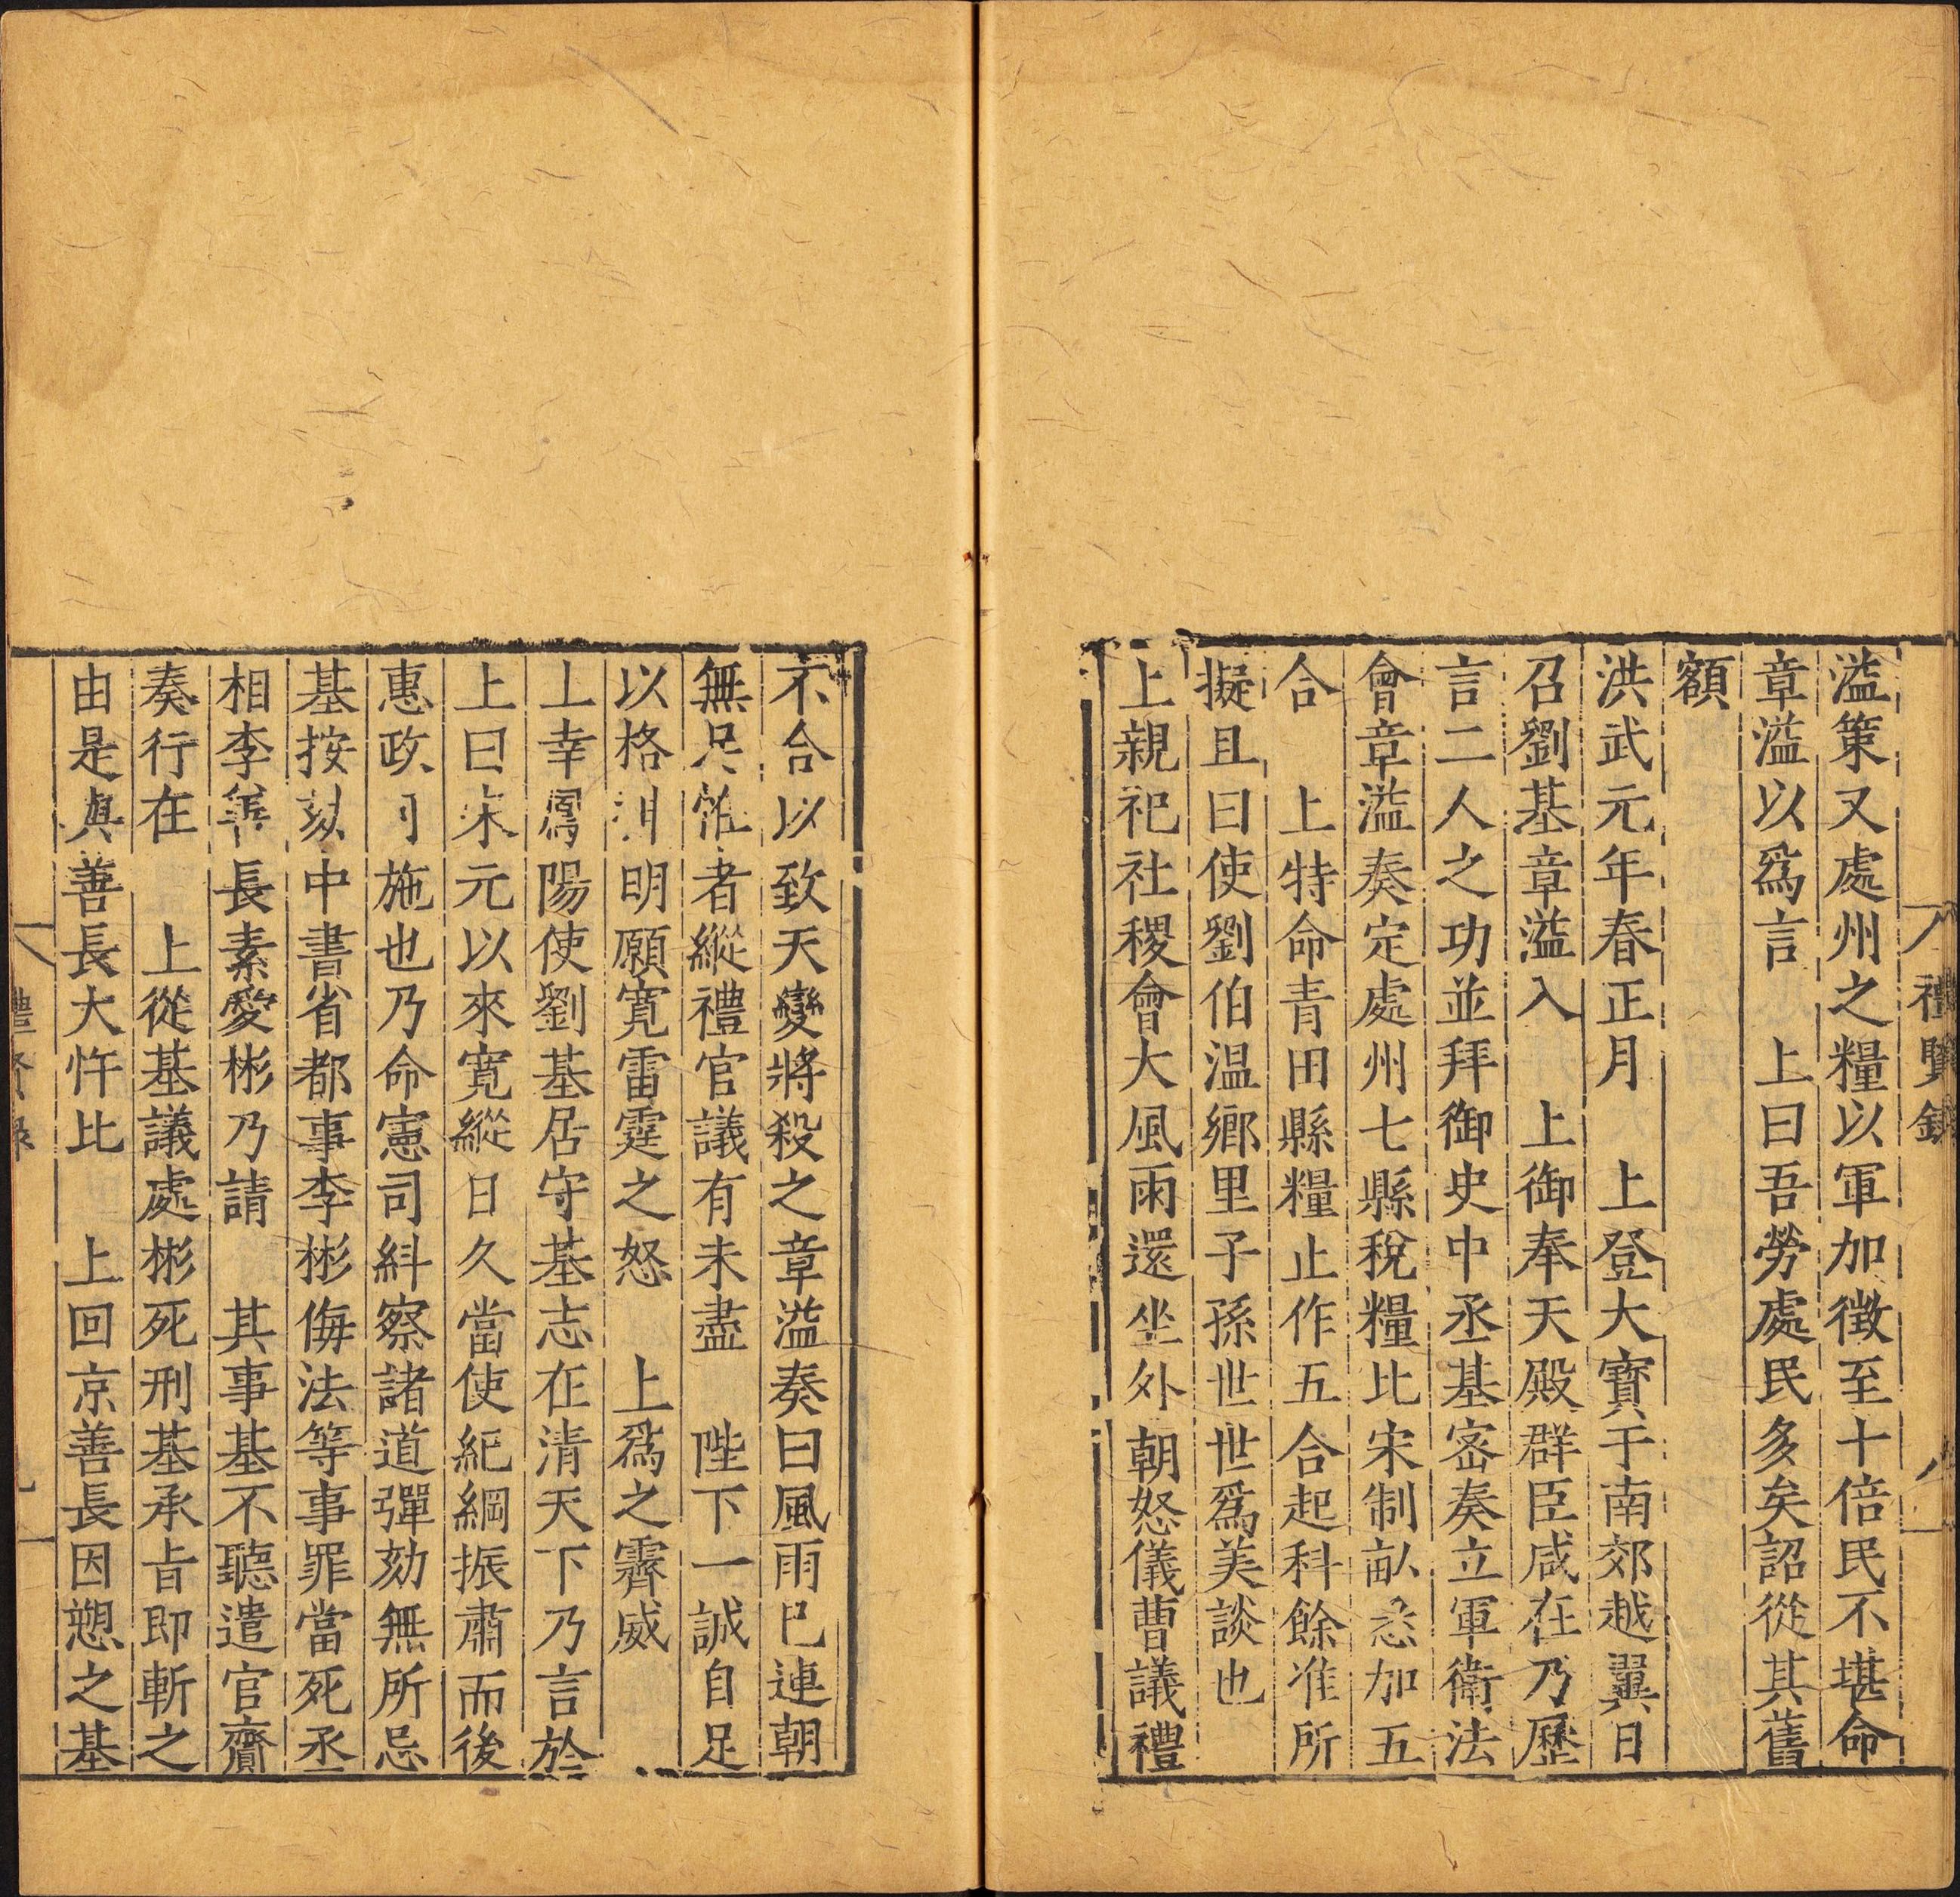 禮賢錄
溢策又處州之糧以軍加徵至十倍民不堪命
章溢以爲言　上曰吾勞處民多矣詔從其舊
額
洪武元年春正月　上登大寶于南郊越翼日
召劉基章溢入　上御奉天殿群臣咸在乃歷
言二人之功並拜御史中丞基密奏立軍衛法
會章溢奏定處州七縣稅糧比宋制畝悉加五
合　上特命青田縣糧止作五合起科餘准所
擬且曰使劉伯温鄉里子孫世世爲美談也
上親祀社稷會大風雨還坐外朝怒儀曹議禮
不合以致天變將殺之章溢奏曰風雨巳連朝
無只惟者縱禮官議有未盡　陛下一誠自足
以格明願寛雷霆之怒　上爲之霽威
上幸鳳陽使劉基居守基志在清天下乃言於
上曰宋元以來寛縱日久當使紀綱振肅而後
惠政可施也乃命憲司糾察諸道彈劾無所忌
基按劾中書省都事李彬侮法等事罪當死丞
相李善長素愛彬乃請　其事基不聽遣官齎
奏行在　上從基議處彬死刑基承旨即斬之
由是與善長大忤比　上回京善長因愬之基
禮賢錄